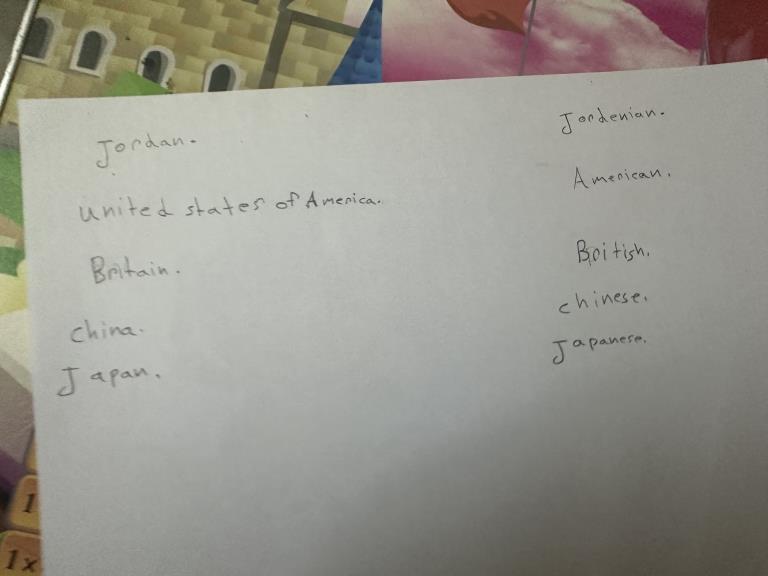 Jordan.
Jordenian.
united states of America.
American.
Britain.
British.
china.
chinese.
Japan.
Japanese.
1
1x